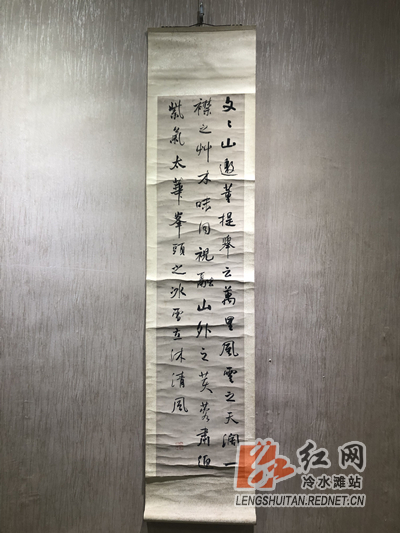 文〻山邀董提舉云萬里風雲之天闊一
襟之艸木味同視融山外之芙蓉肅迎
紫氣太華峯頭之冰雪立沐清風
红网
冷水滩站
LENGSHUITAN.REDNET.CN